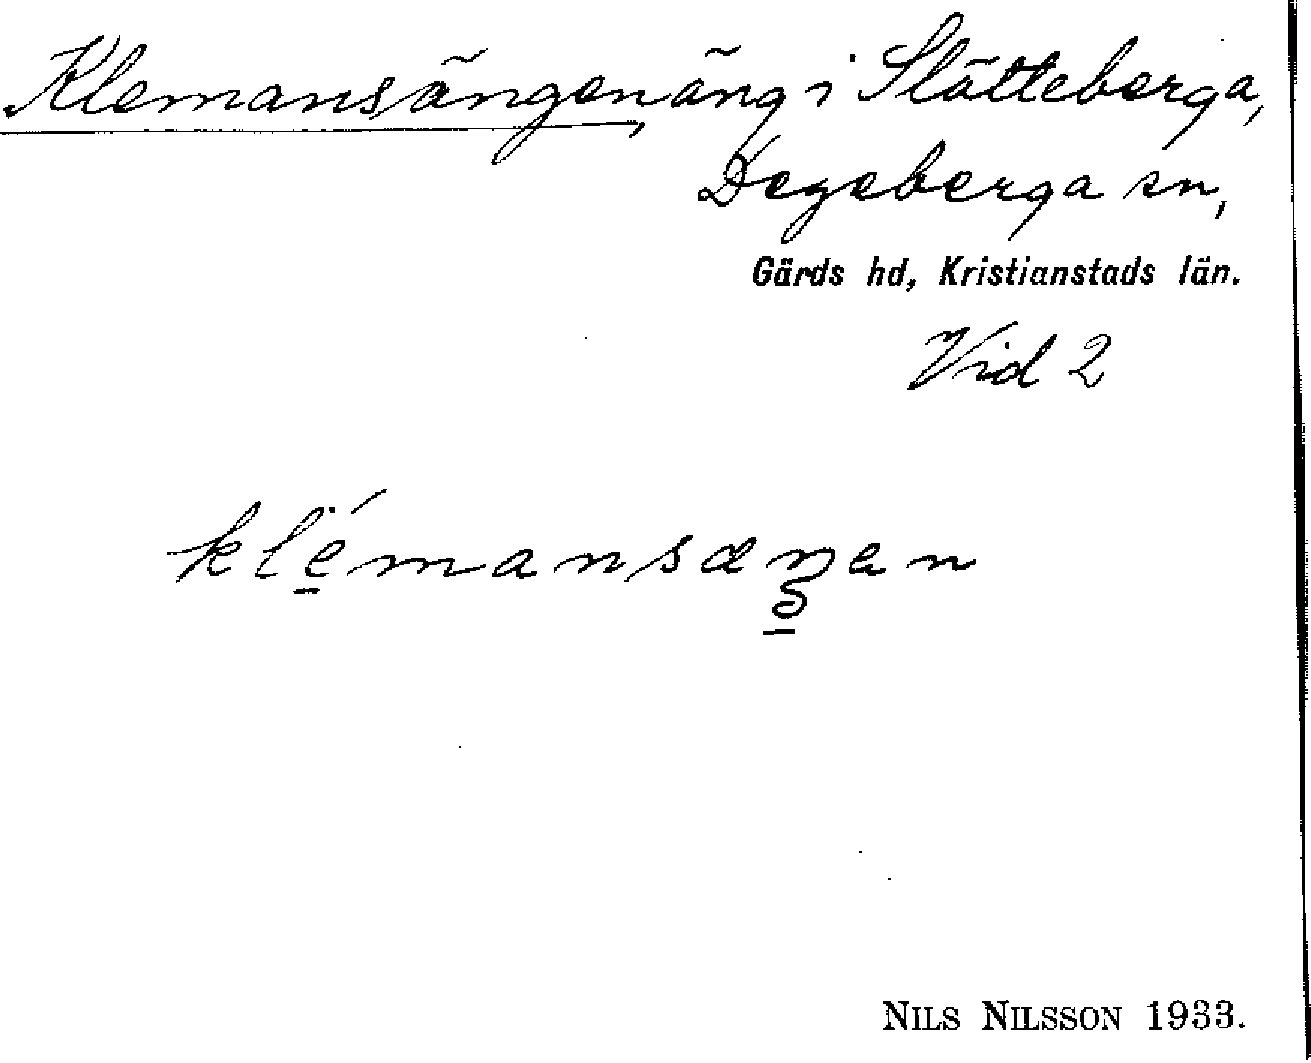 Klemansängen, äng i Slätteberga,
Degeberga sn,
Gärds hd, Kristianstads län.
Vid 2
klémansæŋen
NILS NILSSON 1933.